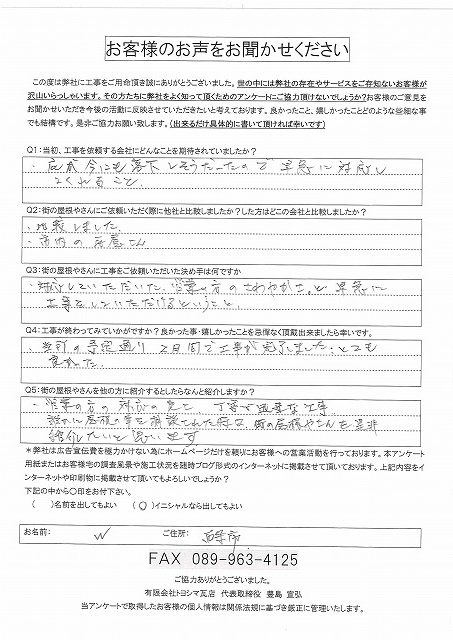 お客様のお声をお聞かせください
この度は弊社に工事をご用命頂き誠にありがとうございました。世の中には弊社の存在やサービスをご存知ないお客様が
沢山いらっしゃいます。その方たちに弊社をよく知って頂くためのアンケートにご協力頂けないでしょうか?お客様のご意見を
お聞かせいただき今後の活動に反映させていただきたいと考えております。良かったこと、嬉しかったことどのような些細な事
でも結構です。是非ご協力お願い致します。(出来るだけ具体的に書いて頂ければ幸いです)
Q1:当初、工事を依頼する会社にどんなことを期待されていましたか?
・瓦が今にも落下しそうだったので早急に対応し
てくれること。
Q2:街の屋根やさんにご依頼いただく際に他社と比較しましたか?した方はどこの会社と比較しましたか?
・比較しました。
・市内の瓦屋さん
Q3:街の屋根やさんに工事をご依頼いただいた決め手は何ですか
・対応していただいた営業の方のさわやかさと早急に
工事をしていただけるということ。
Q4:工事が終わってみていかがですか?良かった事・嬉しかったことを忌憚なく頂戴出来ましたら幸いです。
・当初の予定通り2日間で工事が完了しました。とても
良かった。
Q5:街の屋根やさんを他の方に紹介するとしたらなんと紹介しますか?
・営業の方の対応の良さ 丁寧で迅速な工事
誰かに屋根の事を相談された時は、街の屋根やさんを是非
紹介したいと思います
*弊社は広告宣伝費を極力かけない為にホームページだけを頼りにお客様への営業活動を行っております。本アンケート
用紙またはお客様宅の調査風景や施工状況を随時ブログ形式のインターネットに掲載させて頂いております。上記内容をイ
ンターネットや印刷物に掲載させて頂いてもよろしいでしょうか?
下記の中から〇印をお付下さい。
( )名前を出してもよい (〇)イニシャルなら出してもよい
お名前: W ご住所: 西条市
FAX 089-963-4125
ご協力ありがとうございました。
有限会社トヨシマ瓦店 代表取締役 豊島 宣弘
当アンケートで取得したお客様の個人情報は関係法規に基づき厳正に管理いたします。